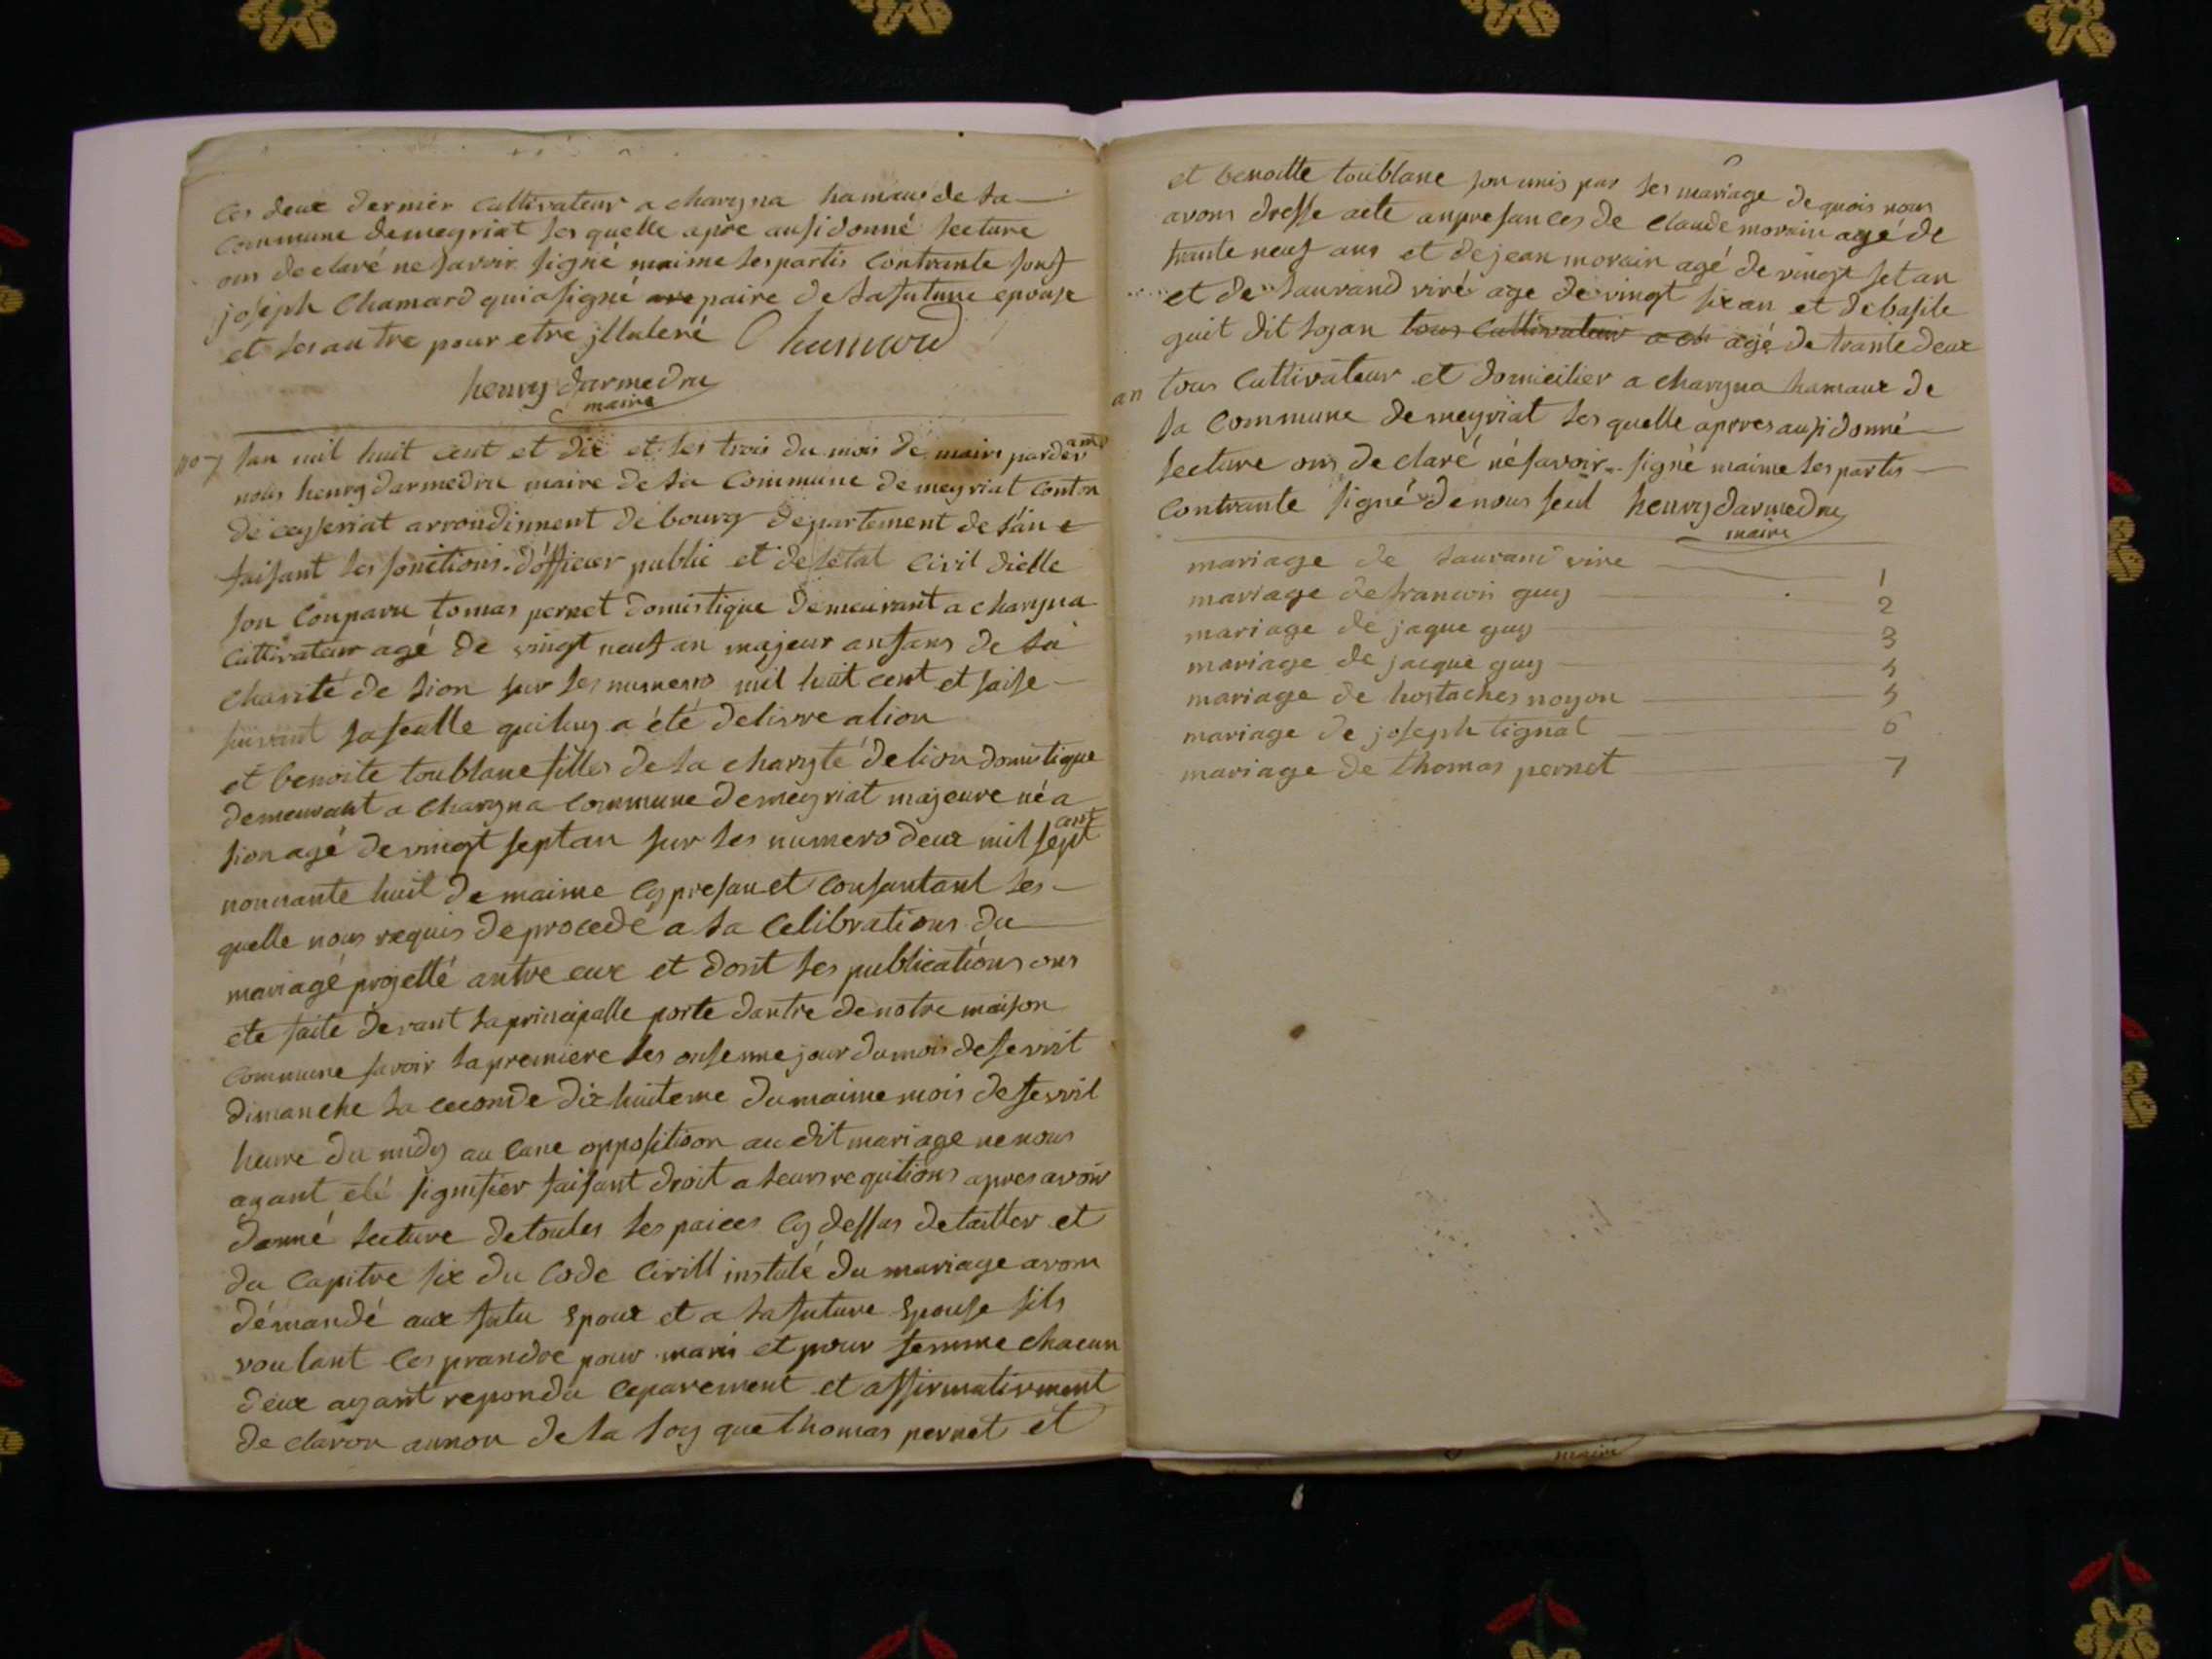 les deux dernier cultivateur a charyna hamaus de la
commune de meyriat les quelle apre ausi donné lecture
ons declaré ne savoir signé maime les partis contrante souf
joséph Chamard qui a signé paire de la future epouse
et les autre pour etre jlluleré Chamard
henry darmedru
maire
no 7 lan mil huit cent et dix et les trois du mois de mairs pardevant
nous henry darmedru maire de la commune de meyriat conton
de ceyseriat arrondinment de bourg departement de l'ain e
faisant les fonctions d'officier public et de létat civil dielle
son conparu tomas pernet domistique demeurant a charyna
cultivateur agé de vingt neuf an majeur anfans de la
charité de lion sur les numero mil huit cent et saise
suivant la feulle qui luy a été delivre a lion
et benoite toublane filles de la charyté de lion domistique
demeurant a charyna commune de meyriat majeure né a
lion agé de vingt sept an sur les numero deux mil sept cent
nonnante huit de maime cy presan et consantant les
quelle nous requis de procedé a la celibrations du
mariagé projetté antre eux et dont les publications ons
ete faite devant la principalle porte dantre de notre maison
commune savoir la premiere les onsenme jour du mois de fevrit
dimanche la ceconde dix huiteme du maime mois de fevril
heure du midy au cune oppositison au dit mariage ne nous
ayant eté signifier faisant droit a leurs requtions apres avoir
donné lecture de toutes les paices cy dessus detailler et
du capitre six du code civill instulé du mariage avom
démandé aux futu epoux et a la future epouse sils
voulant les prandre pour maris et pour femme chacun
deux ayant repondu ceparement et affirmativment
de claron aunon de la loy que thomas pernet et
et benoitte toublane son unis par les mariage de quois nous
avons dresse acte anpresances de claude morain agé de
trante neuf ans et de jean morain agé de vingt set an
et de laurand viré age de vingt six an et de basile
guit dit loyan tous cultivateur a ch agé de trante deux
an tous cultivateur et domicilier a charyna hamaux de
la commune de meyriat les quelle aprres ausi donné
lecture ons de claré né savoir signé maime les partis
contrante signé de nous seul henry darmedru
maire
mariage de laurand vire 1
mariage de francois guy 2
mariage de jaque guy 3
mariage de jacque guy 4
mariage de hostaches noyon 5
mariage de joseph tignat 6
mariage de thomas pernet 7
maire